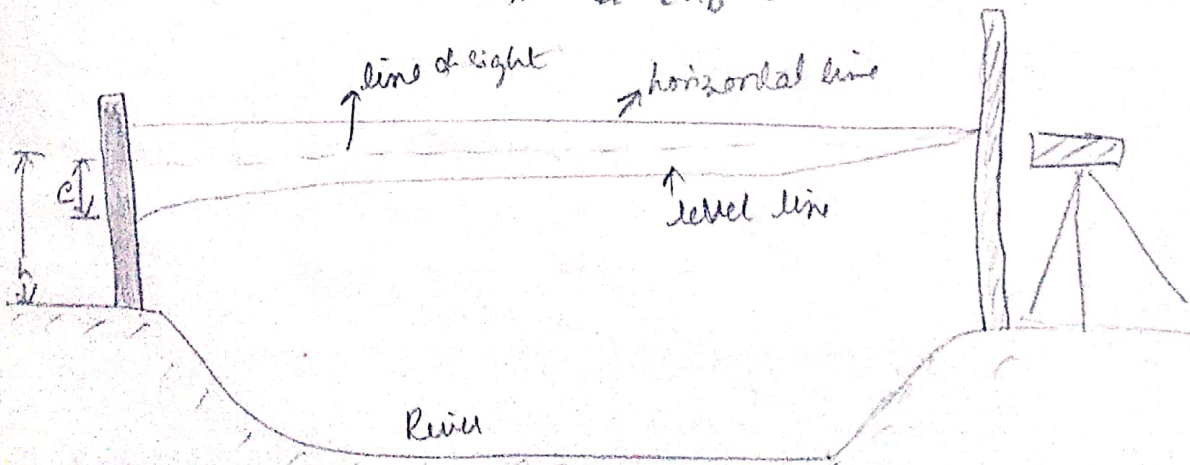 line of sight
horizontal line
e
level line
h
River